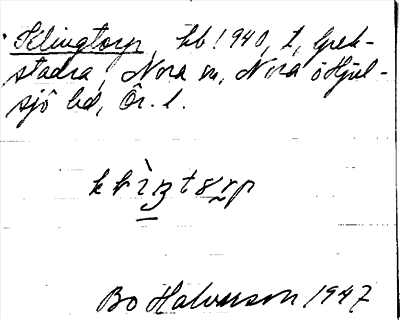 Klingtorp, hb 1940, t, Grek-
stadra, Nora sn, Nora o Hjul-
sjö hd, Ör. l.
Bo Halvarson 1947